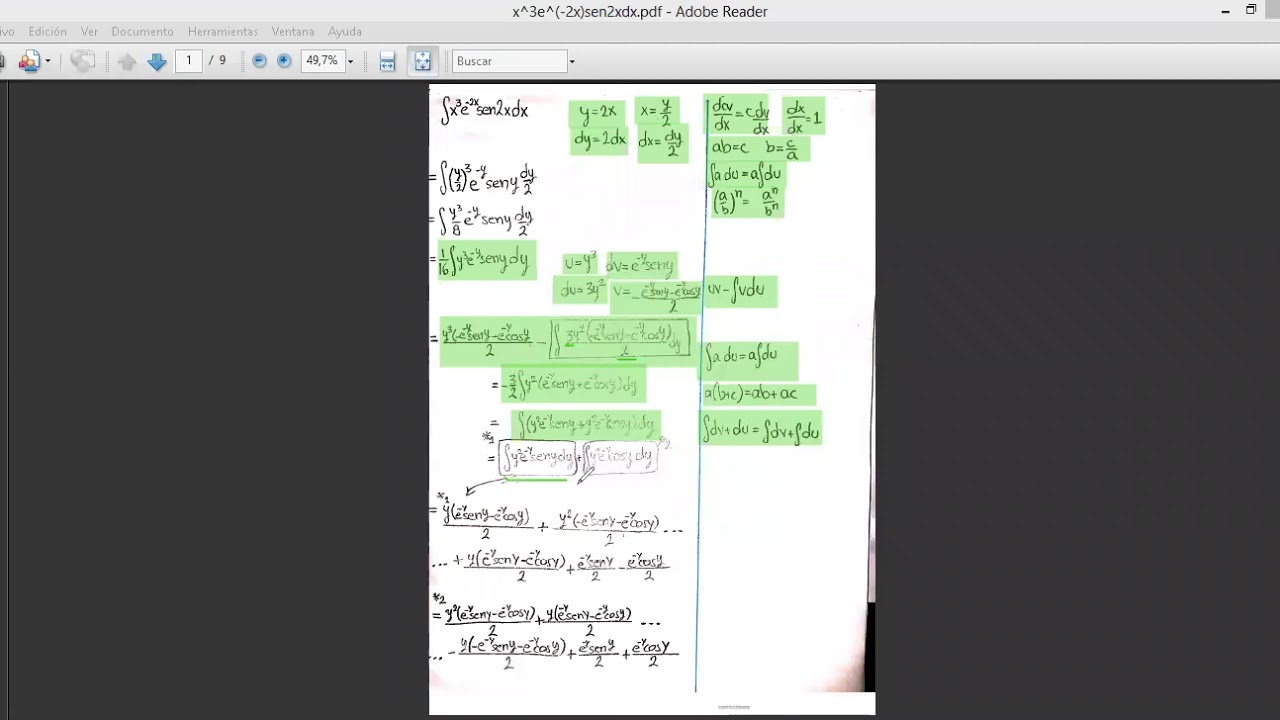 x^3e^(-2x)sen2xdx.pdf - Adobe Reader
ivo Edición Ver Documento Herramientas Ventana Ayuda
1 / 9 49,7% Buscar
∫x³e⁻²ˣsen2xdx
y=2x x=y/2
dy=2dx dx=dy/2
dcv/dx=c dv/dx dx/dx=1
ab=c b=c/a
∫a du=a∫du
(a/b)ⁿ=aⁿ/bⁿ
=∫(y/2)³e⁻ʸseny dy/2
=∫y³/8 e⁻ʸseny dy/2
=1/16∫y³e⁻ʸseny dy
u=y³ dv=e⁻ʸseny
du=3y² v=-e⁻ʸseny-e⁻ʸcosy/2
uv-∫vdu
=y³(-e⁻ʸseny-e⁻ʸcosy)/2 - ∫3y²(-e⁻ʸseny-e⁻ʸcosy)/2 dy
∫a du=a∫du
=-3/2∫y²(e⁻ʸseny+e⁻ʸcosy)dy
a(b+c)=ab+ac
=∫(y²e⁻ʸseny+y²e⁻ʸcosy)dy
∫dv+du=∫dv+∫du
*1 *2
=∫y²e⁻ʸseny dy+∫y²e⁻ʸcosy dy
*1
=y(e⁻ʸseny-e⁻ʸcosy)/2 + y²(-e⁻ʸseny-e⁻ʸcosy)/2 ...
...+y(e⁻ʸseny-e⁻ʸcosy)/2+e⁻ʸseny/2-e⁻ʸcosy/2
*2
=y²(e⁻ʸseny-e⁻ʸcosy)/2+y(e⁻ʸseny-e⁻ʸcosy)/2 ...
...-y(-e⁻ʸseny-e⁻ʸcosy)/2+e⁻ʸseny/2+e⁻ʸcosy/2